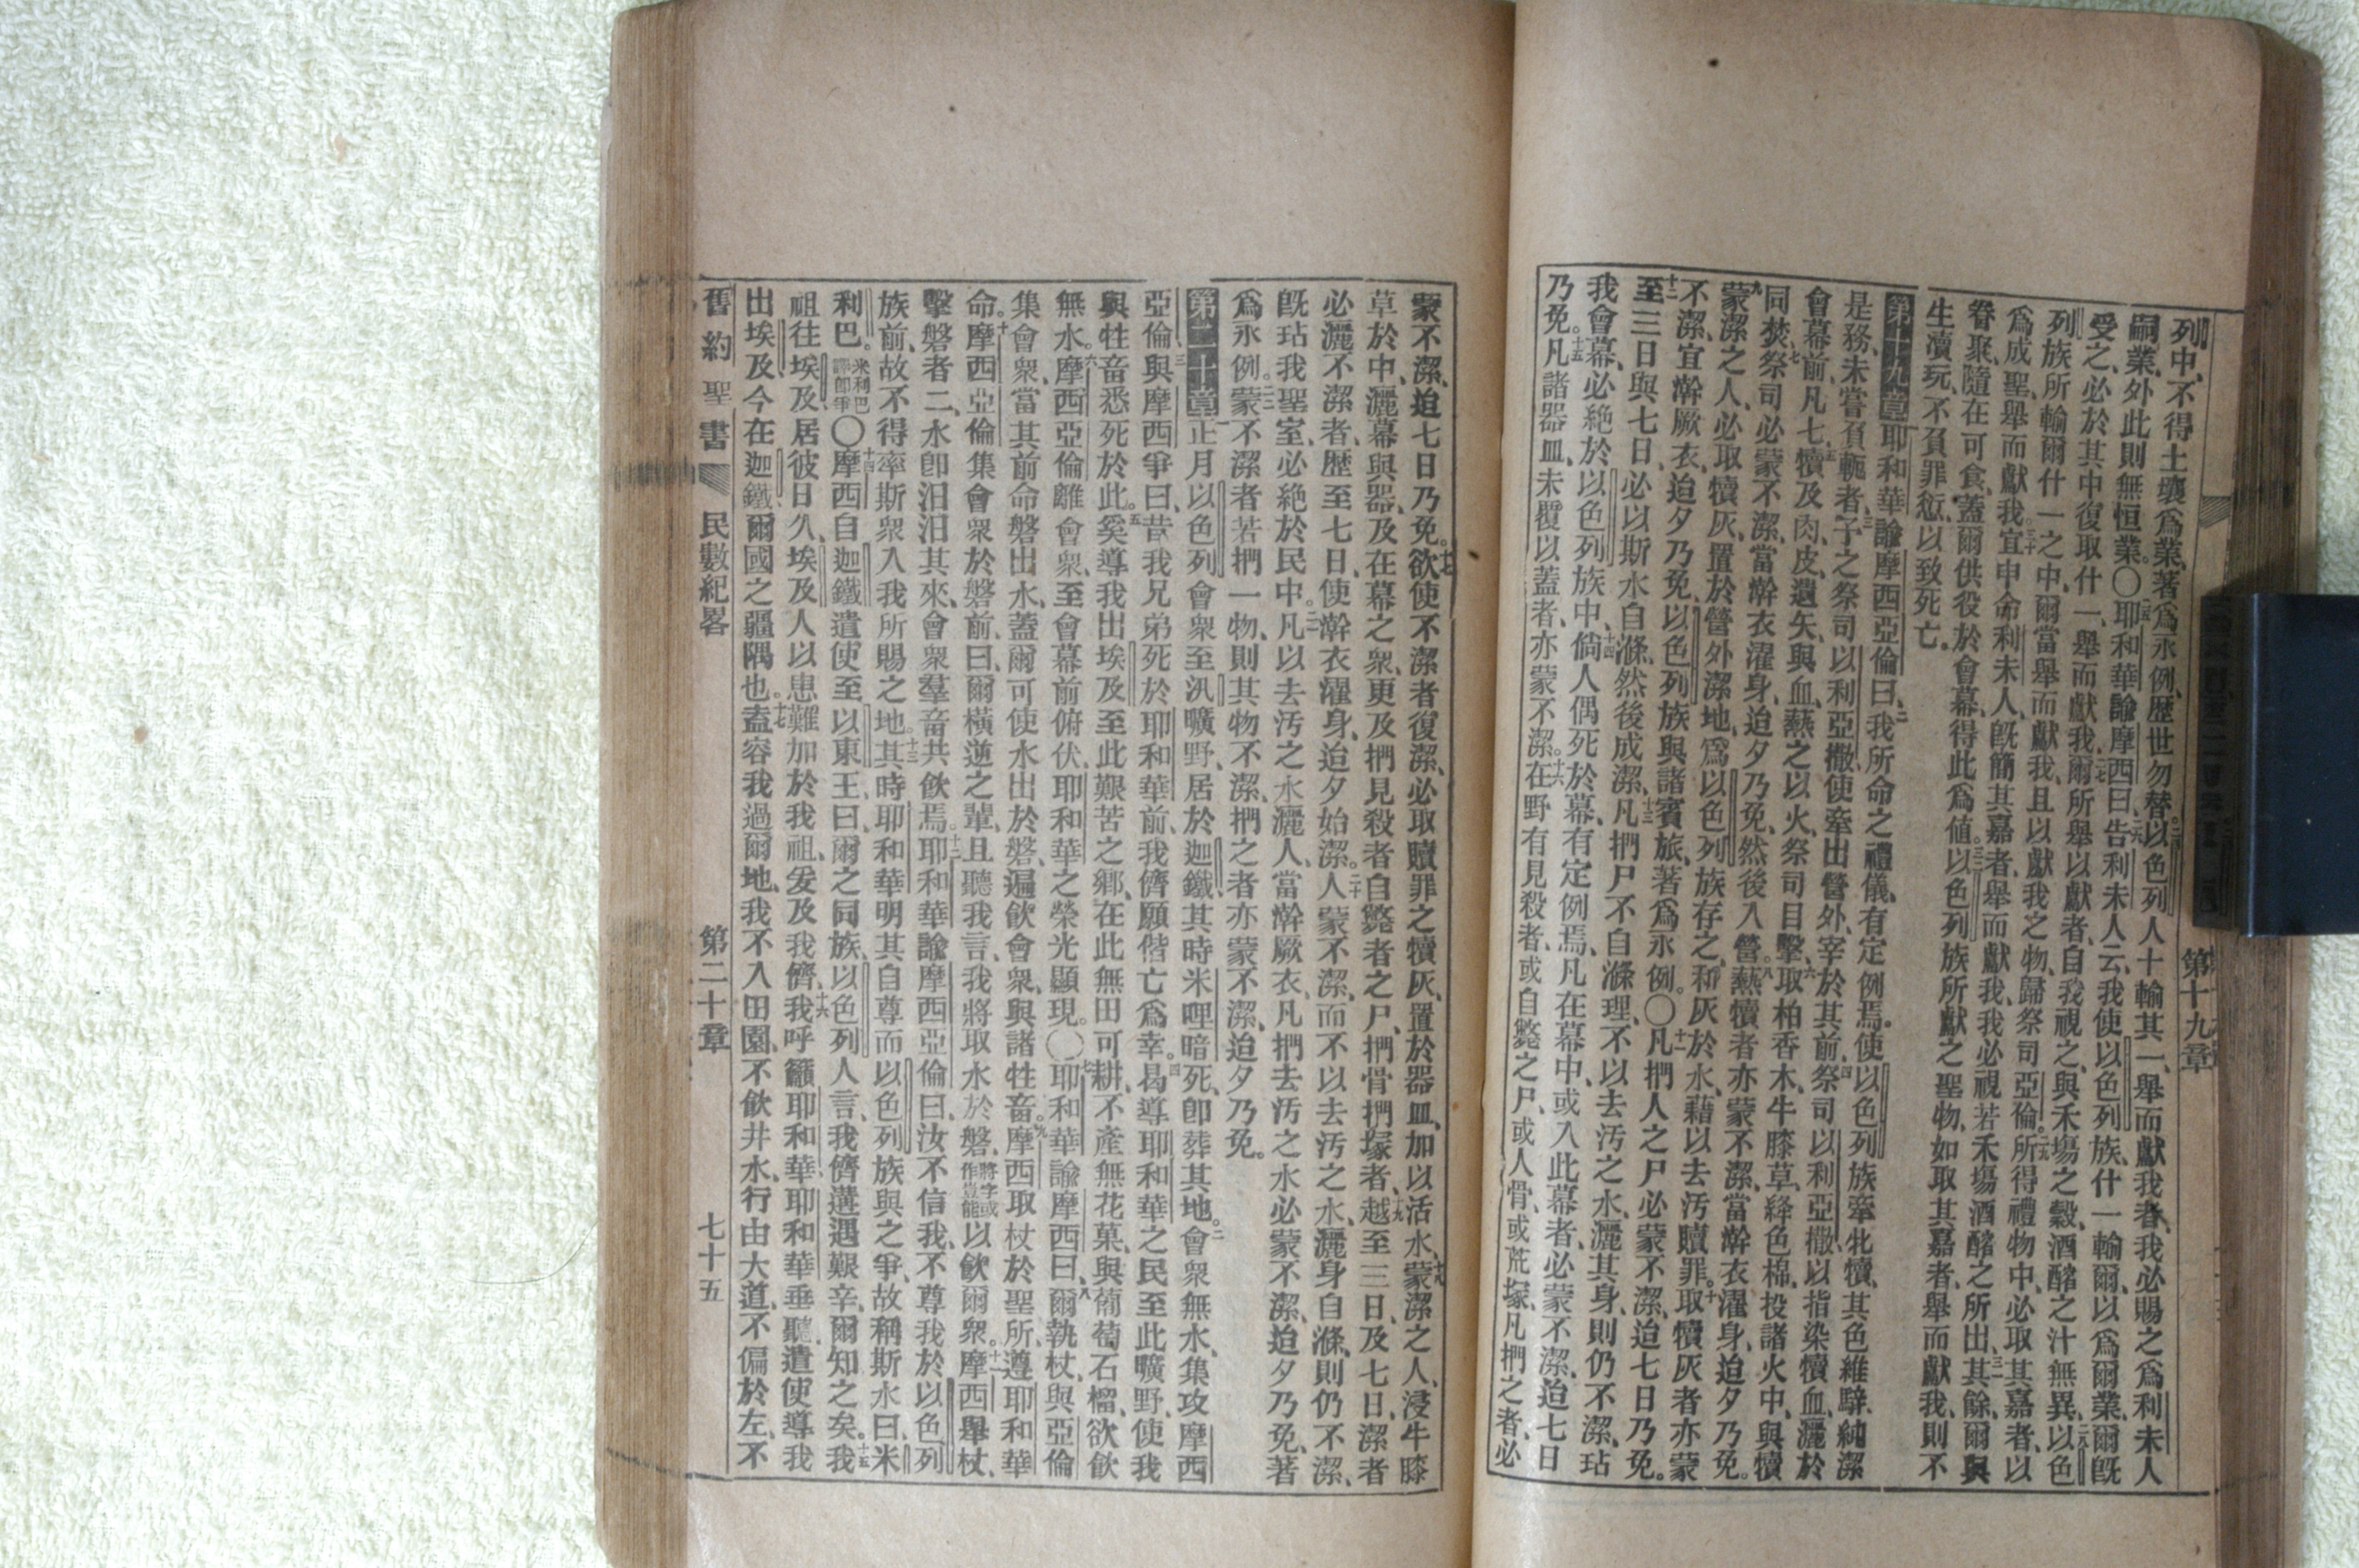 列中、不得土壤爲業、著爲永例、歷世勿替。二四以色列人十輸其一、舉而獻我者、我必賜之、爲利未人
嗣業、外此則無恒業。〇二五耶和華諭摩西曰、二六告利未人云、我使以色列族、什一輸爾、以爲爾業、爾旣
受之、必於其中復取什一、舉而獻我、二七爾所舉以獻者、自我視之、與禾塲之穀、酒醡之汁無異、二八以色
列族所輸爾什一之中、爾當舉而獻我、且以獻我之物、歸祭司亞倫。二九所得禮物中、必取其嘉者、以
爲成聖、舉而獻我。三十宜申命利未人、旣簡其嘉者、舉而獻我、我必視若禾塲酒醡之所出、三一其餘爾與
眷聚、隨在可食、蓋爾供役於會幕、得此爲値。三二以色列族所獻之聖物、如取其嘉者、舉而獻我、則不
生瀆玩、不負罪愆、以致死亡。
第十九章耶和華諭摩西亞倫曰、二我所命之禮儀、有定例焉、使以色列族牽牝犢、其色維騂、純潔
是務、未嘗負軛者、三子之祭司以利亞撒、使牽出營外、宰於其前、四祭司以利亞撒、以指染犢血、灑於
會幕前、凡七、五犢及肉、皮、遺矢、與血、爇之以火、祭司目擊、六取柏香木、牛膝草、絳色棉、投諸火中、與犢
同焚、七祭司必蒙不潔、當澣衣濯身、迨夕乃免、然後入營。八爇犢者亦蒙不潔、當澣衣濯身、迨夕乃免。
九蒙潔之人、必取犢灰、置於營外潔地、爲以色列族存之、和灰於水、藉以去汚贖罪。十取犢灰者亦蒙
不潔、宜澣厥衣、迨夕乃免、以色列族與諸賓旅、著爲永例。〇十一凡捫人之尸、必蒙不潔、迨七日乃免。
十二至三日與七日、必以斯水自滌、然後成潔、十三凡捫尸不自滌理、不以去汚之水、灑其身、則仍不潔、玷
我會幕、必絕於以色列族中、十四倘人偶死於幕、有定例焉、凡在幕中、或入此幕者、必蒙不潔、迨七日
乃免。十五凡諸器皿、未覆以蓋者、亦蒙不潔。十六在野有見殺者、或自斃之尸、或人骨、或荒塚、凡捫之者、必
蒙不潔、迨七日乃免。十七欲使不潔者復潔、必取贖罪之犢灰、置於器皿、加以活水、十八蒙潔之人、浸牛膝
草於中、灑幕與器、及在幕之衆、更及捫見殺者自斃者之尸、捫骨捫塚者、十九越至三日、及七日、潔者
必灑不潔者、歷至七日、使澣衣濯身、迨夕始潔。二十人蒙不潔、而不以去汚之水、灑身自滌、則仍不潔、
旣玷我聖室、必絕於民中。二一凡以去汚之水灑人、當澣厥衣、凡捫去汚之水、必蒙不潔、迨夕乃免、著
爲永例。二二蒙不潔者、若捫一物、則其物不潔、捫之者亦蒙不潔、迨夕乃免。
第二十章正月以色列會衆至汛曠野、居於迦鐵、其時米哩暗死、卽葬其地。二會衆無水、集攻摩西
亞倫、三與摩西爭曰、昔我兄弟死於耶和華前、我儕願偕亡爲幸。四曷導耶和華之民至此曠野、使我
與牲畜悉死於此。五奚導我出埃及、至此艱苦之鄉、在此無田可耕、不產無花菓、與葡萄石榴、欲飲
無水。六摩西亞倫離會衆、至會幕前俯伏、耶和華之榮光顯現。〇七耶和華諭摩西曰、八爾執杖、與亞倫
集會衆、當其前命磐出水、蓋爾可使水出於磐、遍飲會衆、與諸牲畜。九摩西取杖於聖所、遵耶和華
命。十摩西亞倫集會衆於磐前、曰、爾橫逆之輩、且聽我言、我將取水於磐、將字或作豈能以飲爾衆。十一摩西舉杖、
擊磐者二、水卽汩汩其來、會衆羣畜共飲焉。十二耶和華諭摩西亞倫曰、汝不信我、不尊我於以色列
族前、故不得率斯衆、入我所賜之地。十三其時耶和華明其自尊、而以色列族與之爭、故稱斯水曰、米
利巴。米利巴譯卽爭〇十四摩西自迦鐵遣使至以東王曰、爾之同族、以色列人言、我儕遘遇艱辛、爾知之矣。十五我
祖往埃及、居彼日久、埃及人以患難加於我祖、爰及我儕、十六我呼籲耶和華、耶和華垂聽、遣使導我
出埃及、今在迦鐵、爾國之疆隅也。十七盍容我過爾地、我不入田園、不飲井水、行由大道、不偏於左、不
舊約聖書 民數紀畧 第二十章 七十五
第十九章